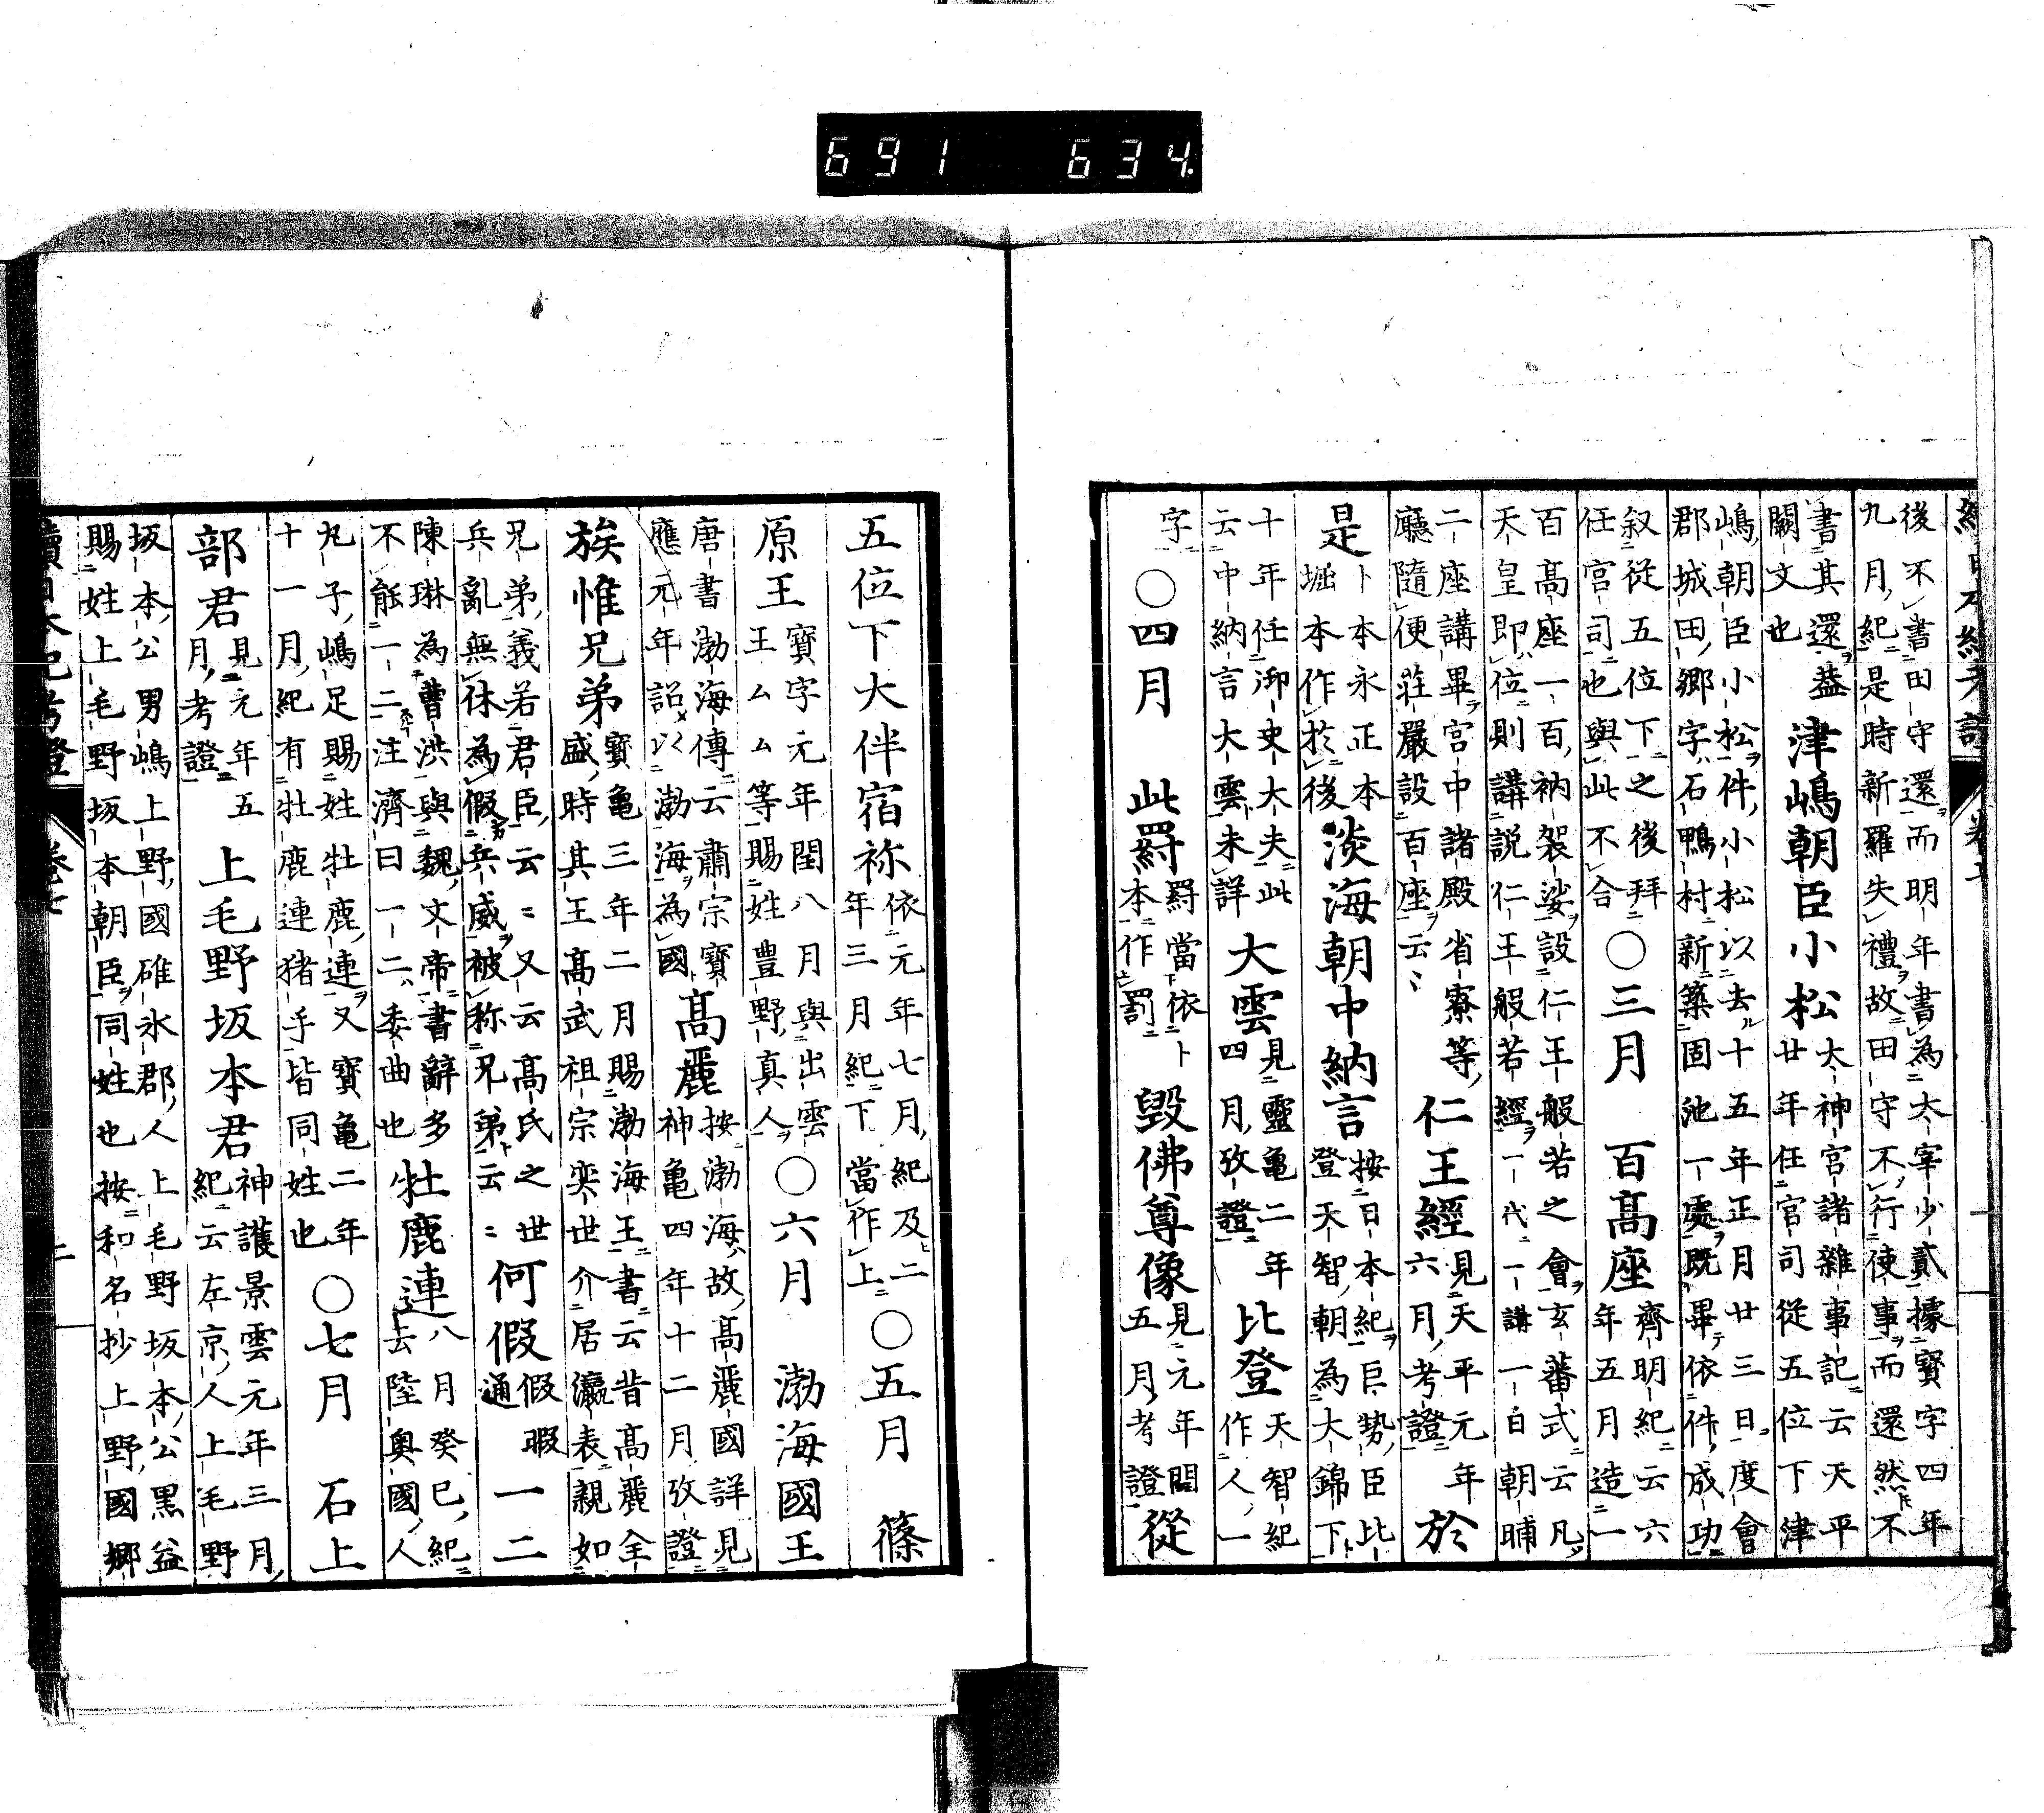 691 634
後不書田守還而明年書為太宰少貳據寶字四年
九月紀是時新羅失禮故田守不行使事而還然不
書其還蓋
闕文也
津嶋朝臣小松
太神宮諸雜事記云天平
廿年任官司從五位下津
嶋朝臣小松件小松以去十五年正月廿三日度會
郡城田鄉字石鴨村新築固池一處既畢依件成功
叙從五位下之後拜
任宮司也與此不合
○三月 百高座
齊明紀云六
年五月造一
百高座一百衲袈裟設仁王般若之會玄蕃式云凡
天皇即位則講説仁王般若經一代一講一自朝晡
二座講畢宮中諸殿省寮等
廳隨便莊嚴設百座云〻
仁王經
見天平元年
六月考證
於
是
卜本永正本
堀本作於後
淡海朝中納言
按日本紀巨勢臣比
登天智朝為大錦下
十年任御史大夫此
云中納言大雲未詳
大雲
見靈亀二年
四月攷證
比登
天智紀
作人一
字
○四月 此罸
罸當依卜
本作罰
毀佛尊像
見元年閏
五月考證
從
五位下大伴宿祢
依元年七月紀及二
年三月紀下當作上
○五月 篠
原王
寶字元年閏八月與出雲
王ムム等賜姓豊野真人
○六月 渤海國王
唐書渤海傳云肅宗寶
應元年詔以渤海為國
高麗
按渤海故高麗國詳見
神亀四年十二月攷證
族惟兄弟
寶亀三年二月賜渤海王書云昔高麗全
盛時其王高武祖宗奕世介居瀛表親如
兄弟義若君臣云〻又云高氏之世
兵亂無休為假兵威被称兄弟云〻
何假
假暇
通
一二
陳琳為曹洪與魏文帝書辭多
不能一二注濟曰一二委曲也
牡鹿連
八月癸巳紀
去陸奥國人
丸子嶋足賜姓牡鹿連又寶亀二年
十一月紀有牡鹿連猪手皆同姓也
○七月 石上
部君
見元年五
月考證
上毛野坂本君
神護景雲元年三月
紀云左京人上毛野
坂本公男嶋上野國碓氷郡人上毛野坂本公黒益
賜姓上毛野坂本朝臣同姓也按和名抄上野國郷